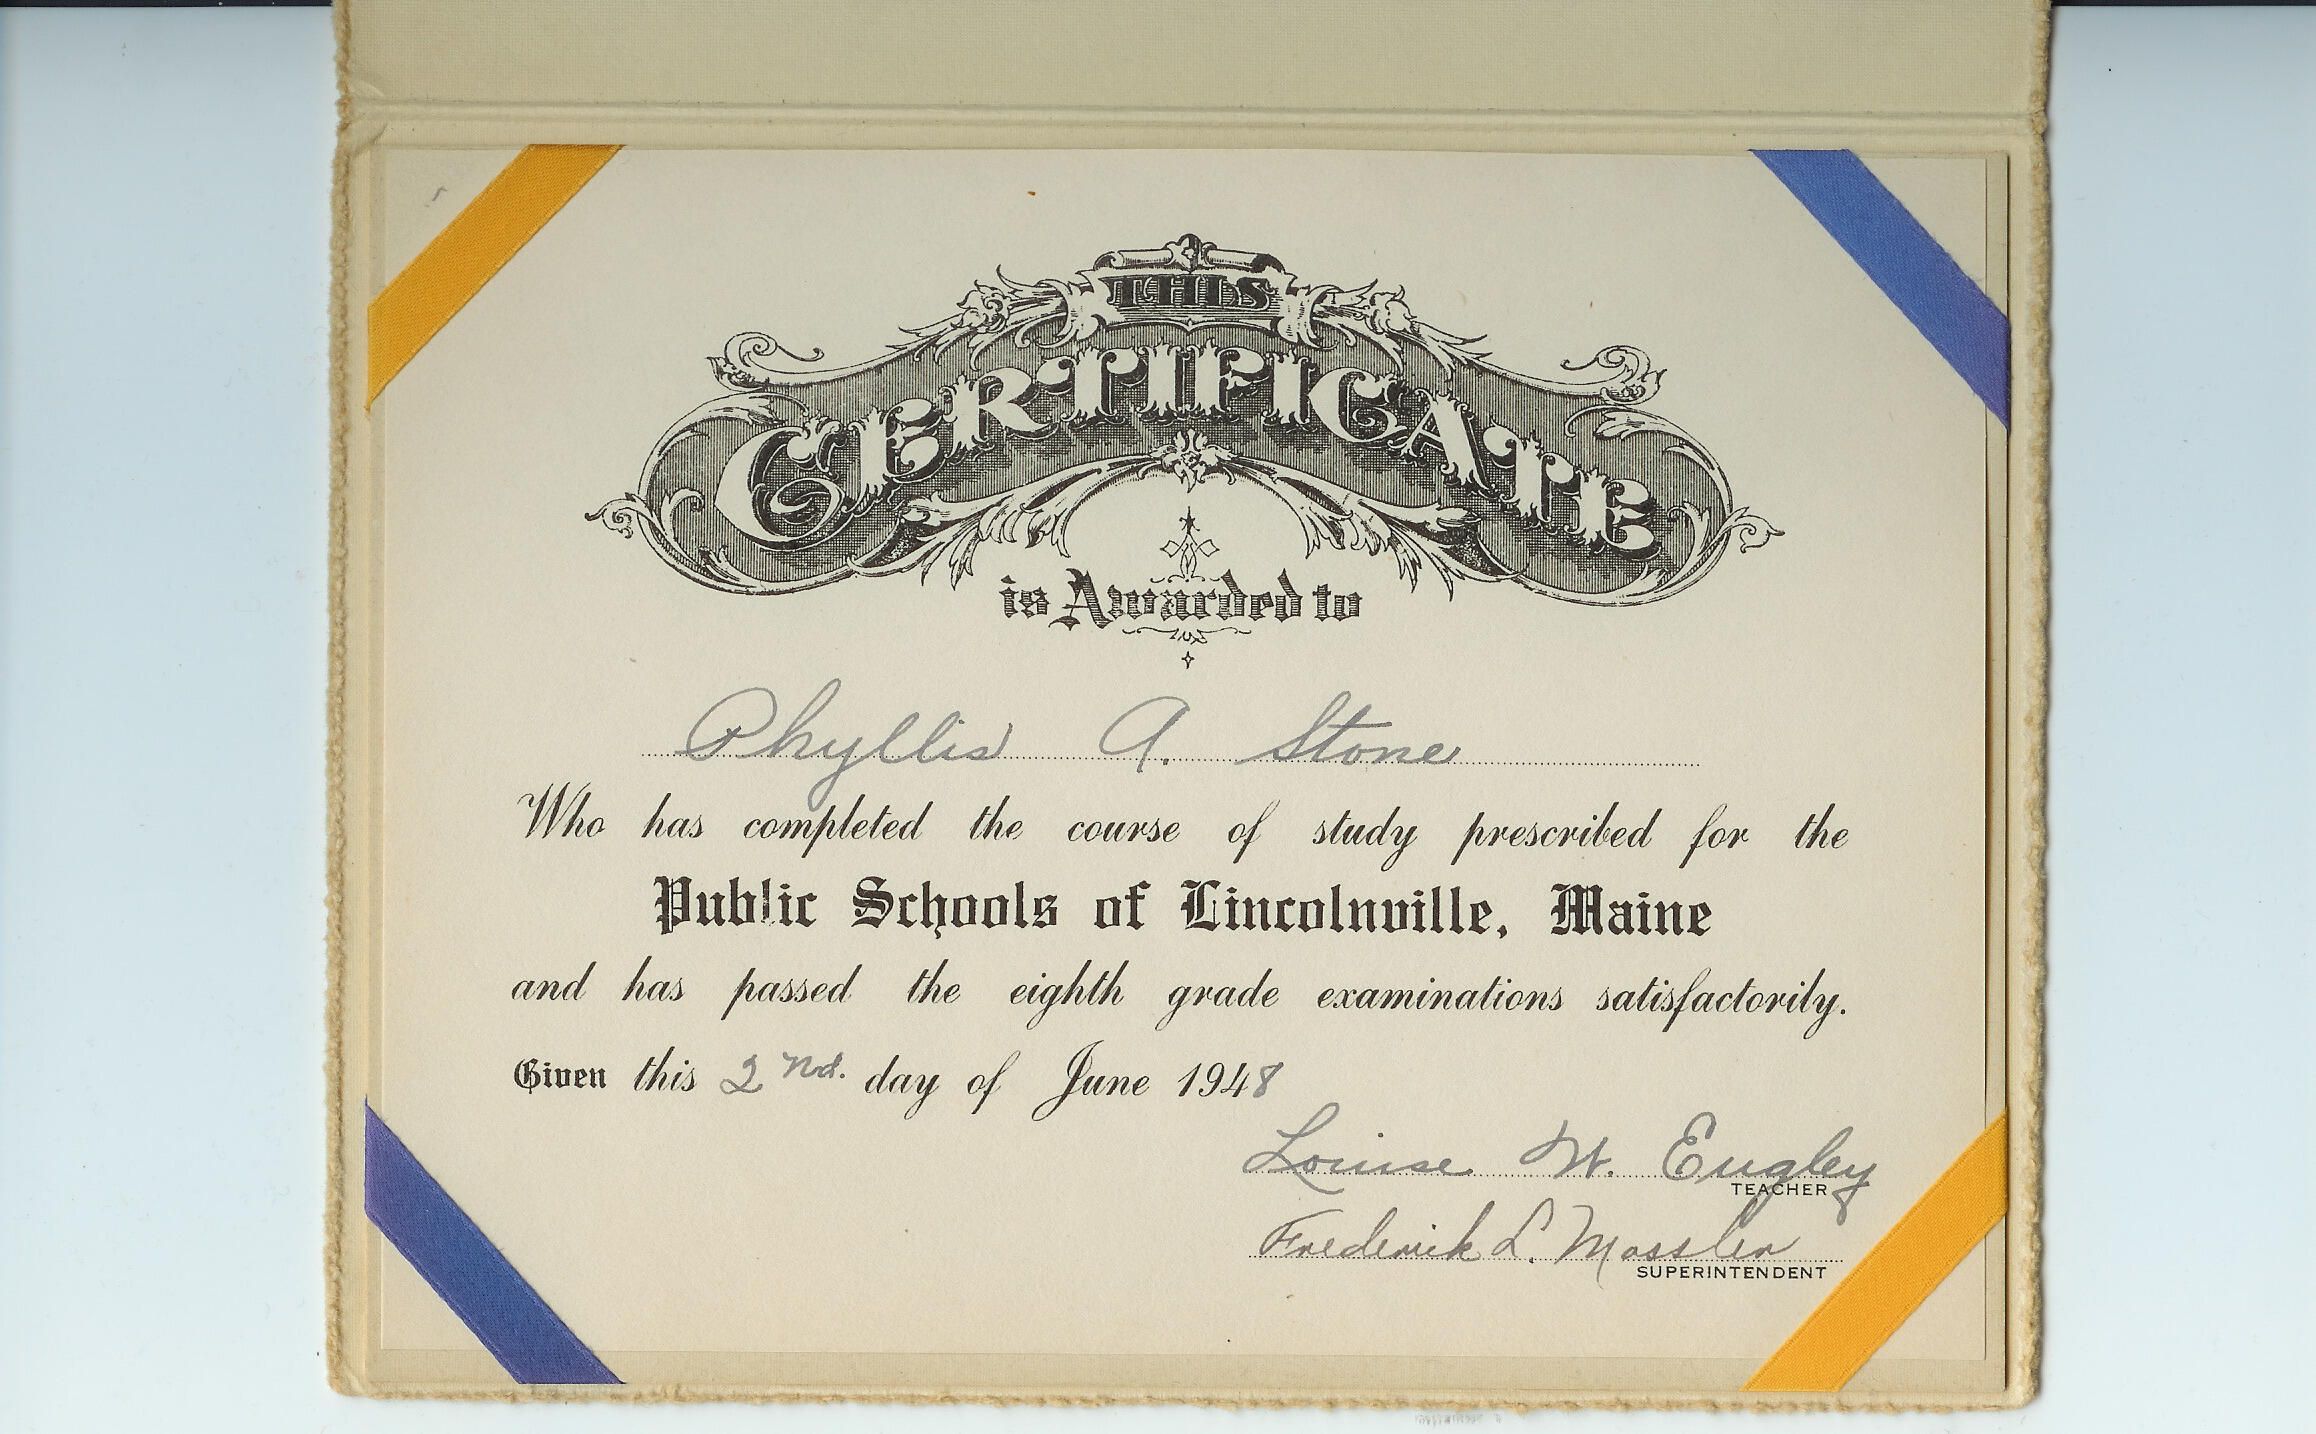 THIS
CERTIFICATE
is Awarded to
Phyllis A. Stone
Who has completed the course of study prescribed for the
Public Schools of Lincolnville, Maine
and has passed the eighth grade examinations satisfactorily.
Given this 2nd. day of June 1948
Louise W. Eugley
TEACHER
Frederick L. Mossler
SUPERINTENDENT